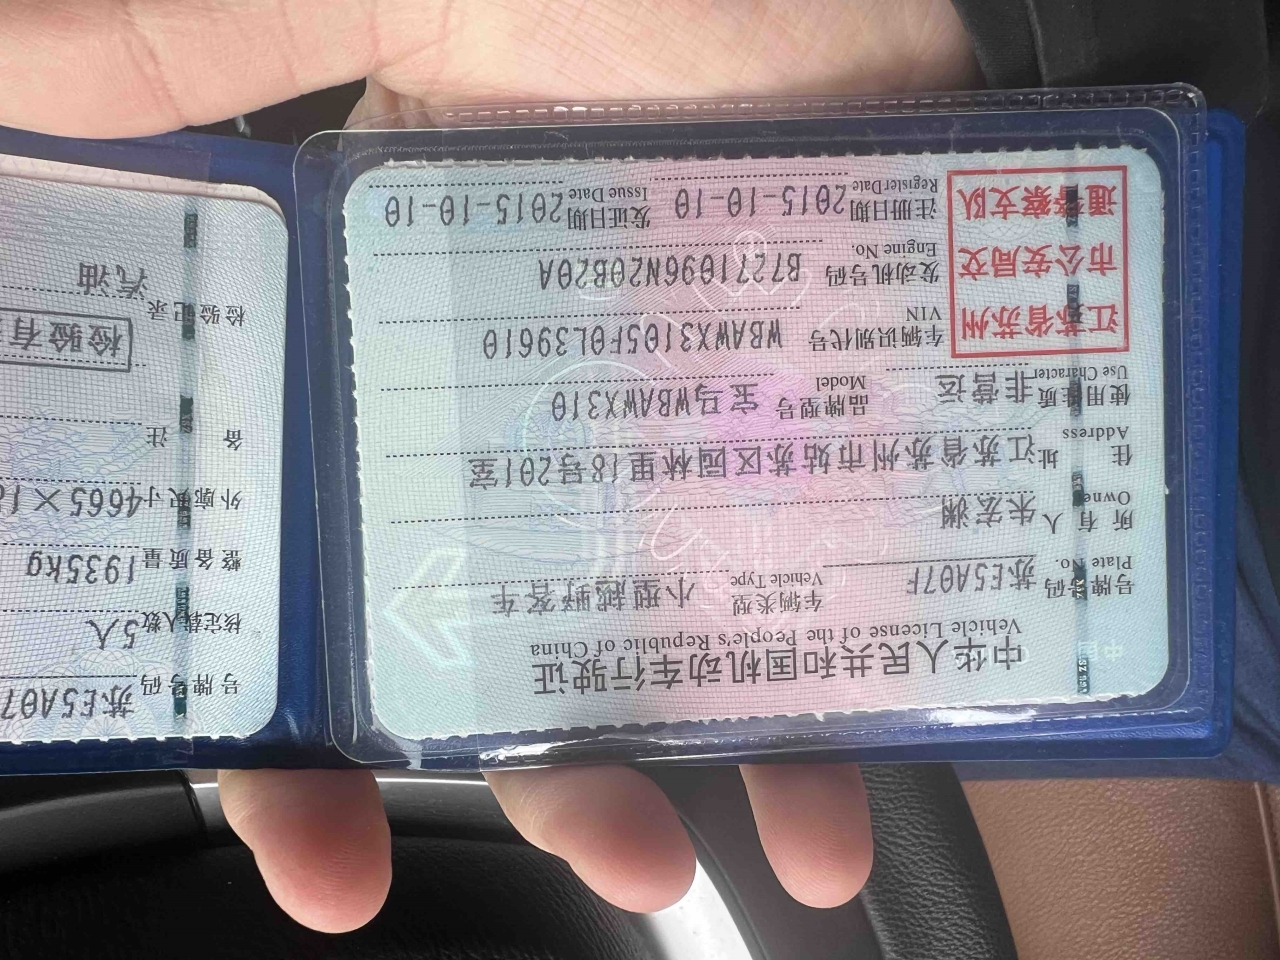 中华人民共和国机动车行驶证
Vehicle License of the People's Republic of China
号牌号码 苏E5A07F 车辆类型 小型越野客车
Plate No. Vehicle Type
所有人 朱宏渊
Owner
住址 江苏省苏州市姑苏区园林里18号201室
Address
使用性质 非营运 品牌型号 宝马WBAWX310
Use Character Model
江苏省苏州
市公安局交
通警察支队
车辆识别代号 WBAWX3105F0L39610
VIN
发动机号码 B7271096N20B20A
Engine No.
注册日期 2015-10-10 发证日期 2015-10-10
Register Date Issue Date
号牌号码 苏E5A07
核定载人数 5人
整备质量 1935kg
外廓尺寸 4665×18
备注
检验有
检验记录
汽油